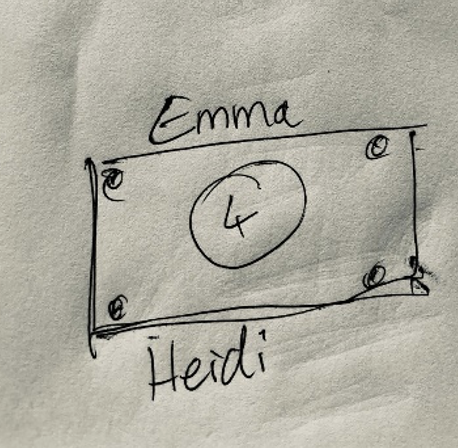 Emma
4
Heidi